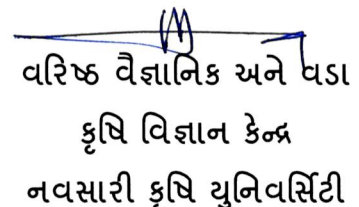 વરિષ્ઠ વૈજ્ઞાનિક અને વડા
કૃષિ વિજ્ઞાન કેન્દ્ર
નવસારી કૃષિ યુનિવર્સિટી